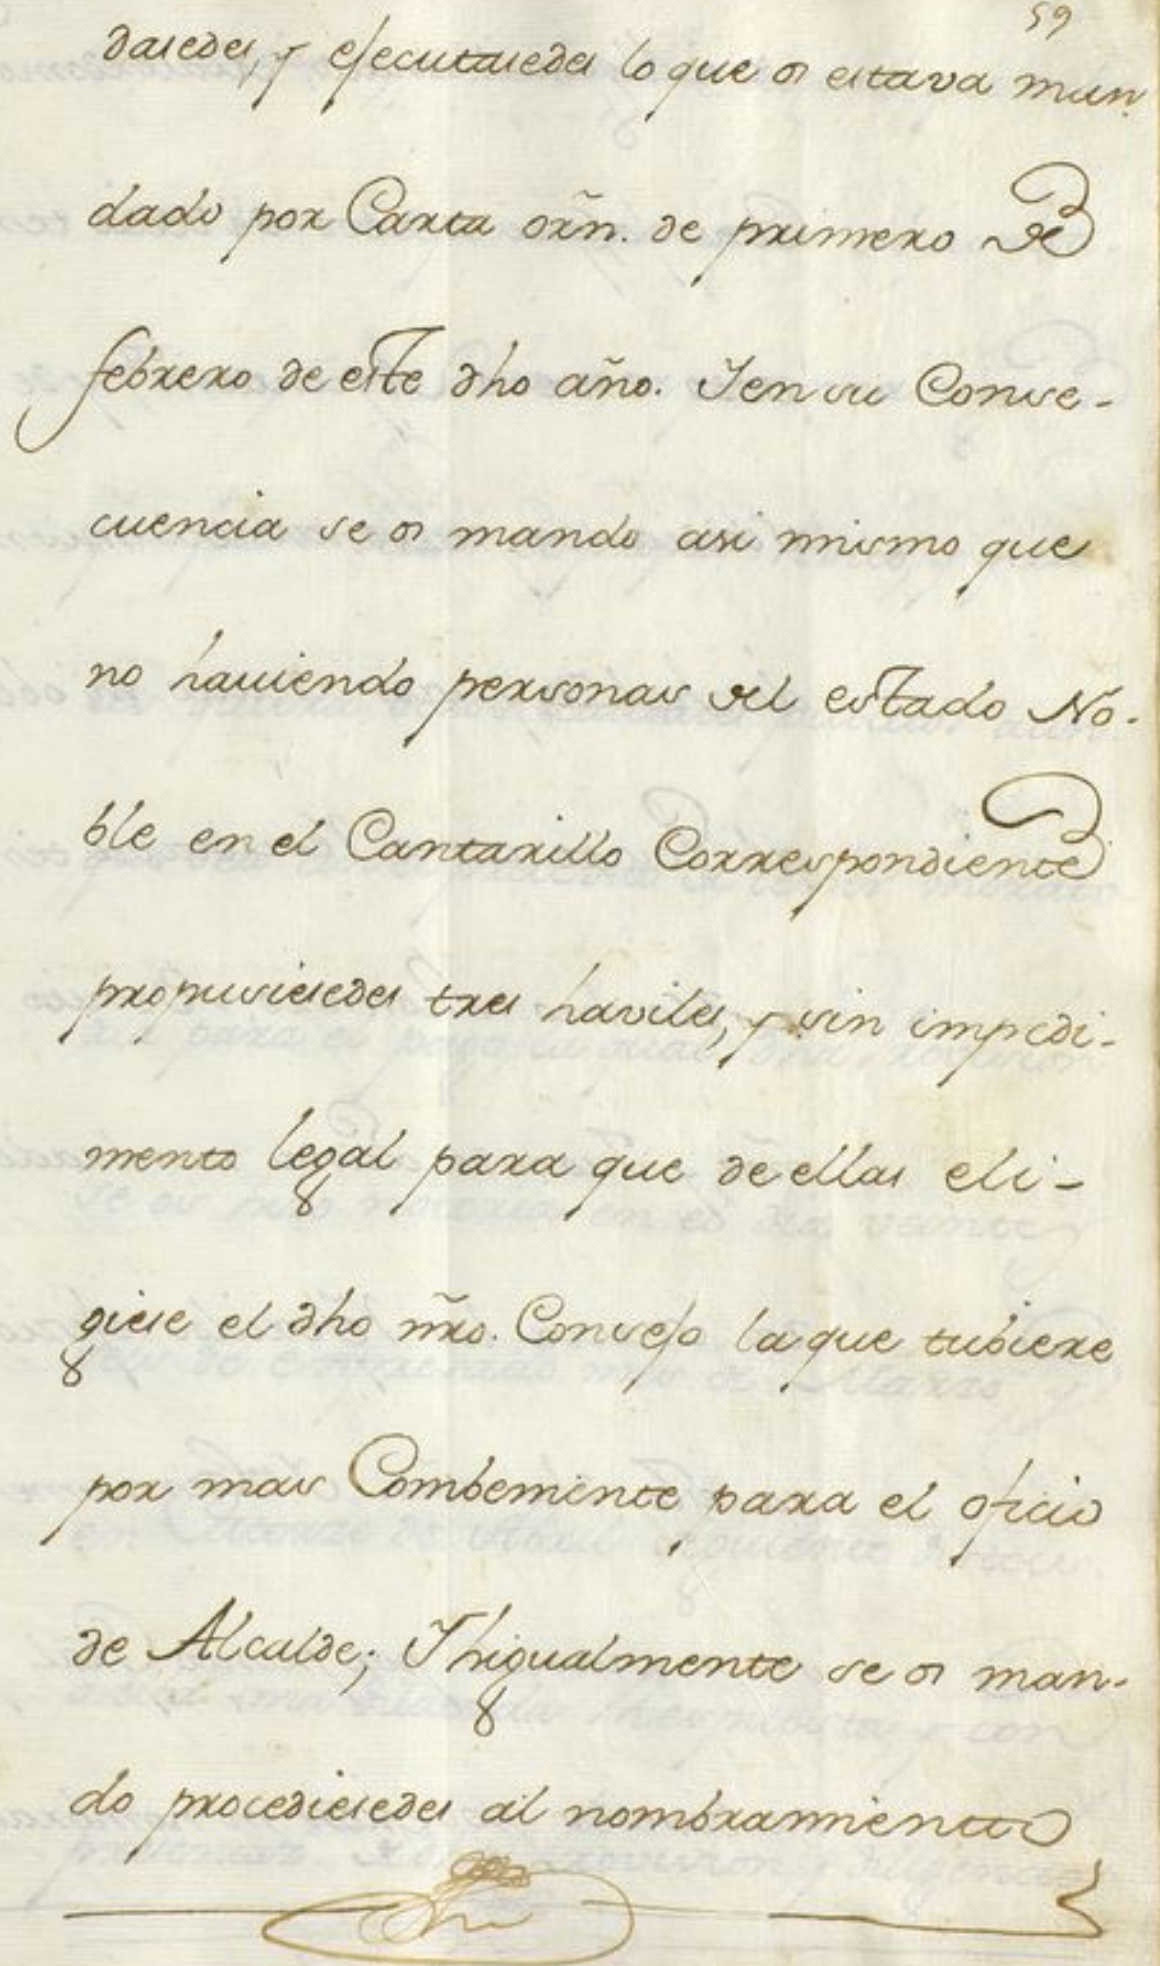 59
dasedes, y ejecutasedes lo que os estava man
dado por Carta orñ. de primero de
febrero de este dho año. Y en su Conse-
cuencia se os mando asi mismo que
no hauiendo personas del estado No-
ble en el Cantarillo Correspondiente
propusiesedes tres haviles, y sin impedi-
mento legal para que de ellas eli-
giese el dho ñro. Consejo la que tubiere
por mas Combeniente para el oficio
de Alcalde; Y higualmente se os man-
do procediesedes al nombramiento